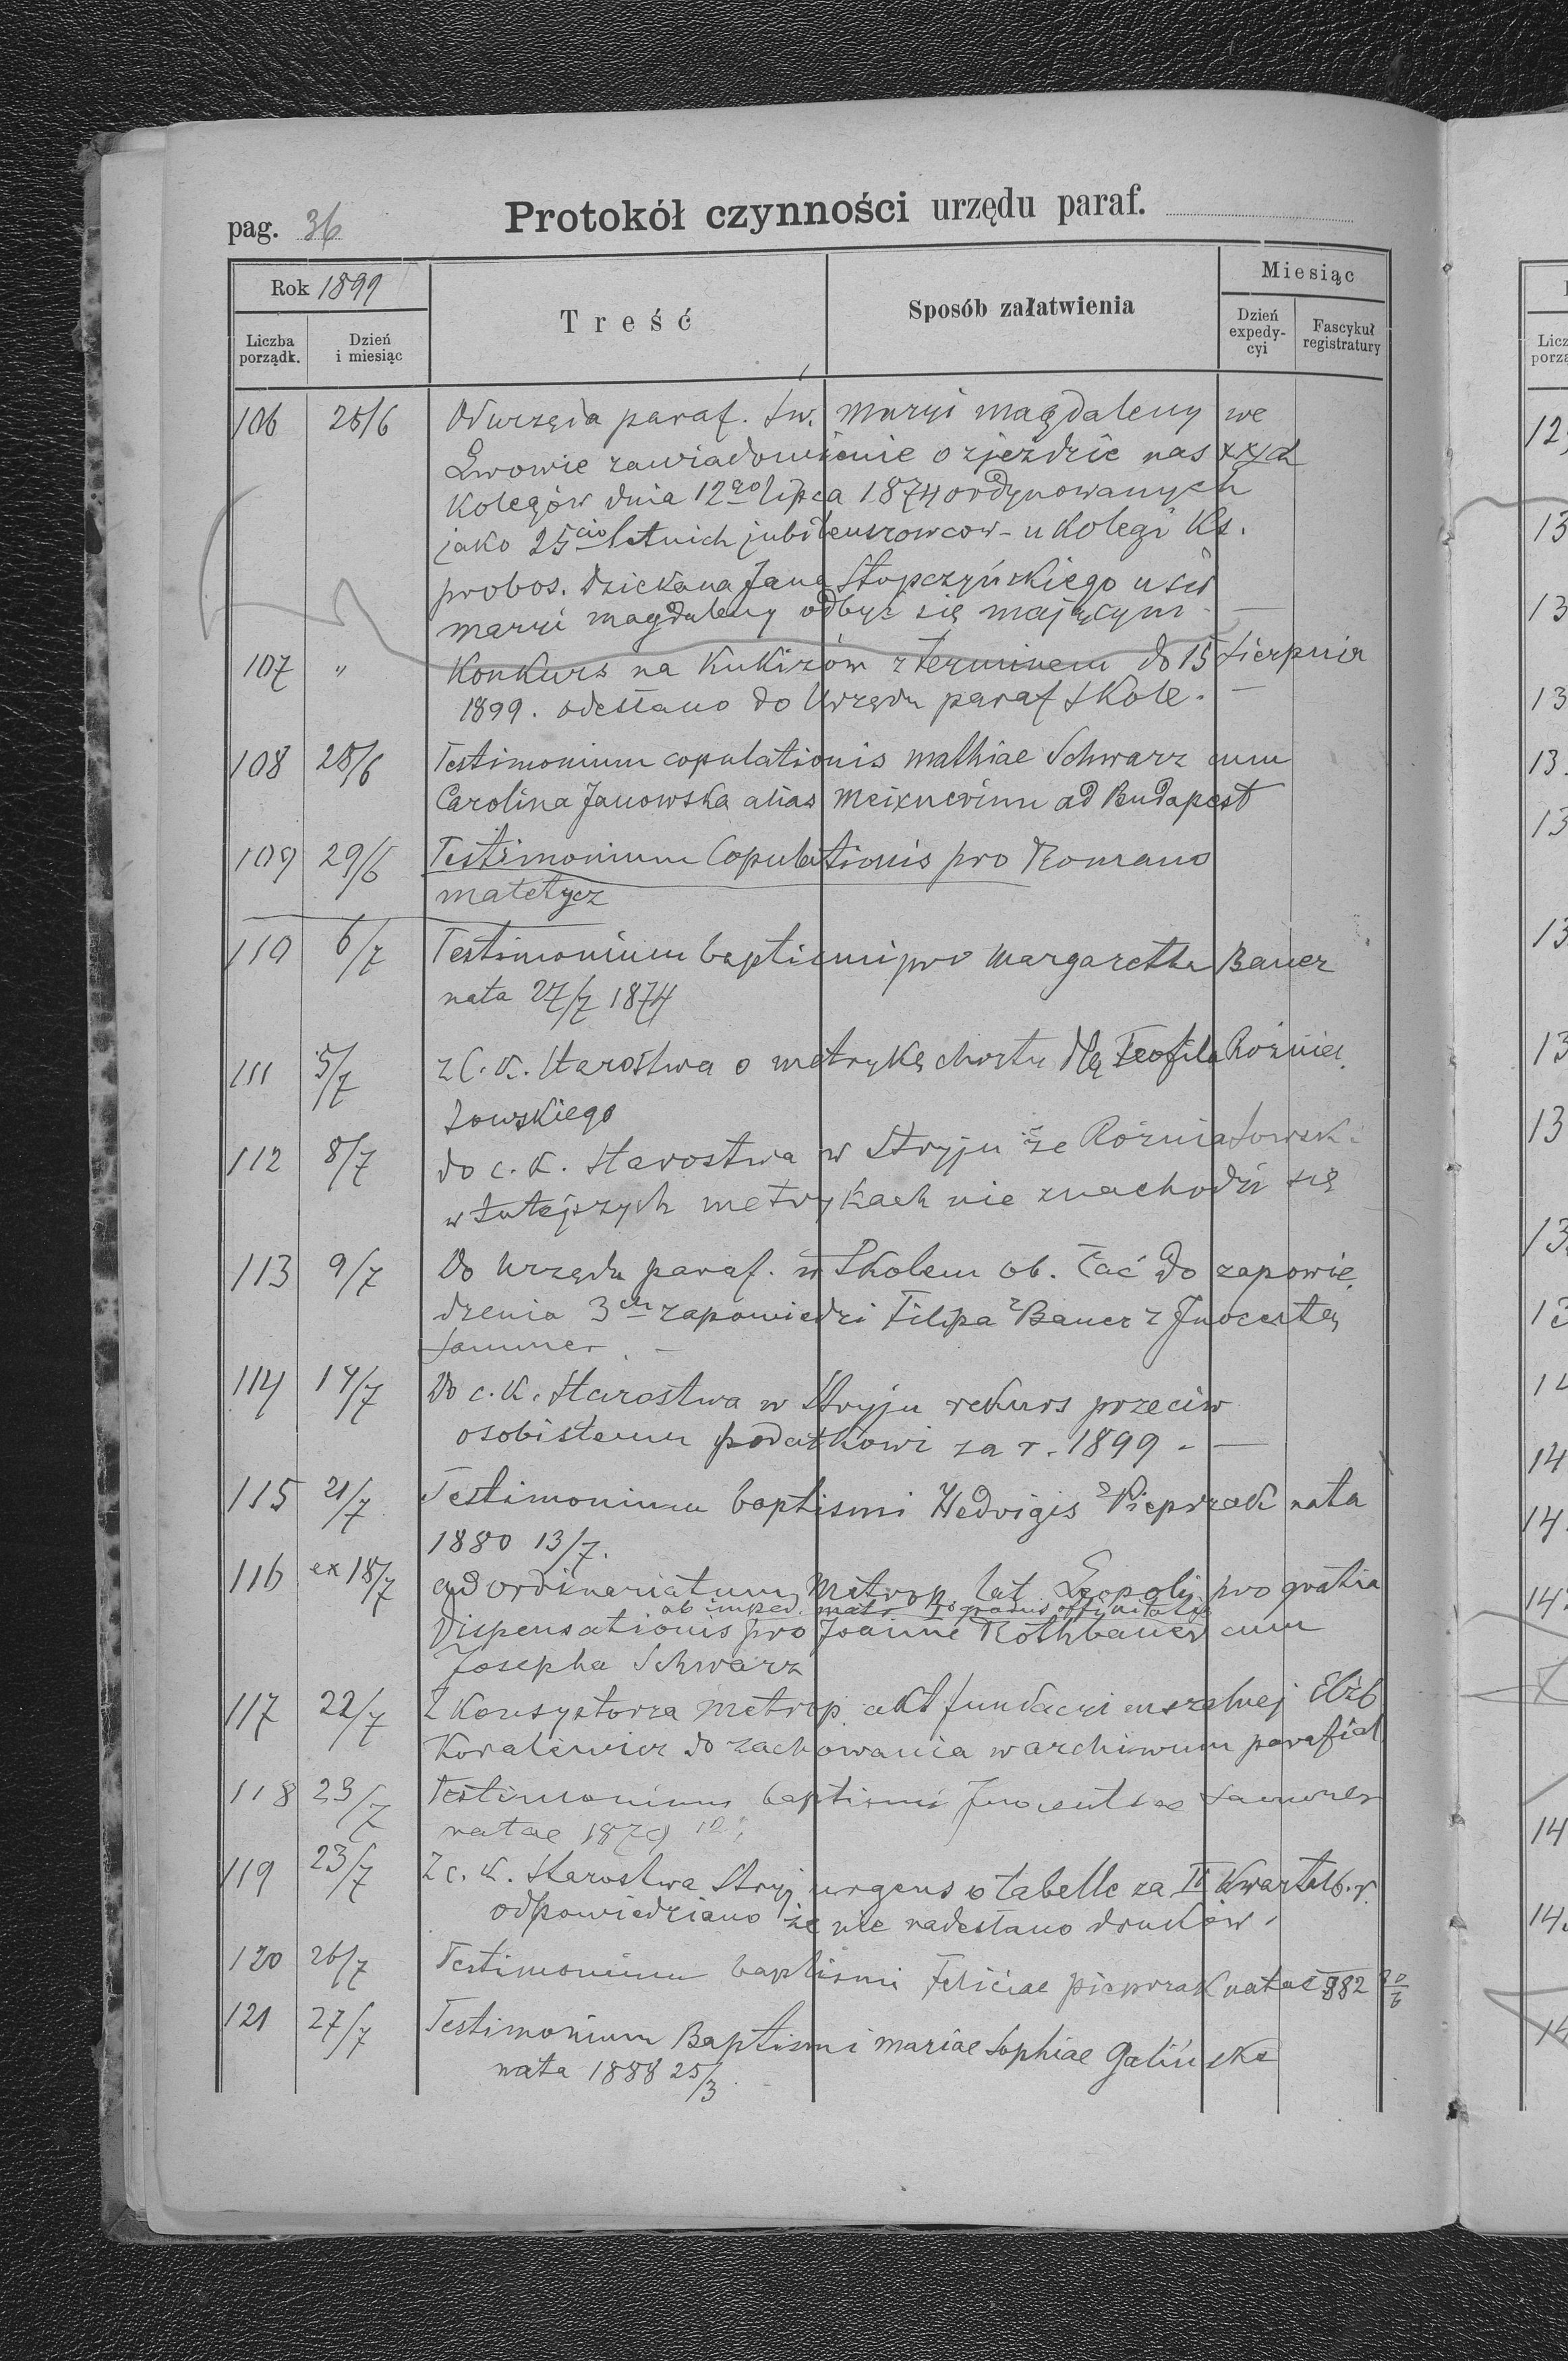 pag. 36
Protokół czynności urzędu paraf.
Rok 1899
Treść
Sposób załatwienia
Miesiąc
Liczba porządk.
Dzień i miesiąc
Dzień expedycyi
Fascykuł registratury
106 25/6 Od urzęda paraf. św. Maryi Magdaleny we
Lwowie zawiadomienie o zjeździe nas xxych
Kolegów dnia 12go lipca 1874 ordynowanych
jako 25cio letnich jubileuszowcow - u Kolegi Ks.
probos. dziekana Jana Stopczyńskiego u św
Maryi Magdaleny odbyć się mającym -
107 " Konkurs na Kukizów z terminem do 15 sierpnia
1899. odesłano do Urzędu paraf Skole. -
108 28/6 Testimonium copulationis Mathiae Schwarz cum
Carolina Janowska alias ad Budapest
109 29/6 Testimonium Copulationis pro Romano
Matetycz
110 6/7 Testimonium baptismi pro Margaretha Bauer
nata 27/7 1874
111 5/7 z C. K. Starostwa o metrykę chrztu dla Teofila Rożnia
towskiego
112 8/7 do c. K. Starostwa w Stryju że Rożniatowski
w tutejszych metrykach nie znachodzi się
113 9/7 Do Urzędu paraf. w Skolem ob. łać do zapowie
dzenia 3ch zapowiedzi Filipa Bauer z Inocentą
Sammer -
114 14/7 Do c. K. Starostwa w Stryju rekurs przeciw
osobistemu podatkowi za r. 1899 - -
115 21/7 Testimonium baptismi Hedvigis Pieprzak nata
1880 13/7.
116 ex 18/7 ad ordinariatum Metrop. lat. Leopoli pro gratia
ob imped. matr gradus affinitatis
Dispensationis pro Joanne Rothbauer cum
Josepha Schwarz
117 22/7 Z Konsystorza Metrop. akt fundacyi mszalnej Elżb
Koralewicz do zachowania w archiwum parafial
118 23/7 Testimonium baptismi Innocentiae Sammer
natae 1879
119 23/7 Z c. K. Starostwa Stryj urgens o tabelle za II Kwartał b. r.
odpowiedziano że nie nadesłano druków.
120 26/7 Testimonium baptismi Feliciae Pieprzak natae 882 20/6
121 27/7 Testimonium Baptismi Mariae Sophiae Galińska
nata 1888 25/3